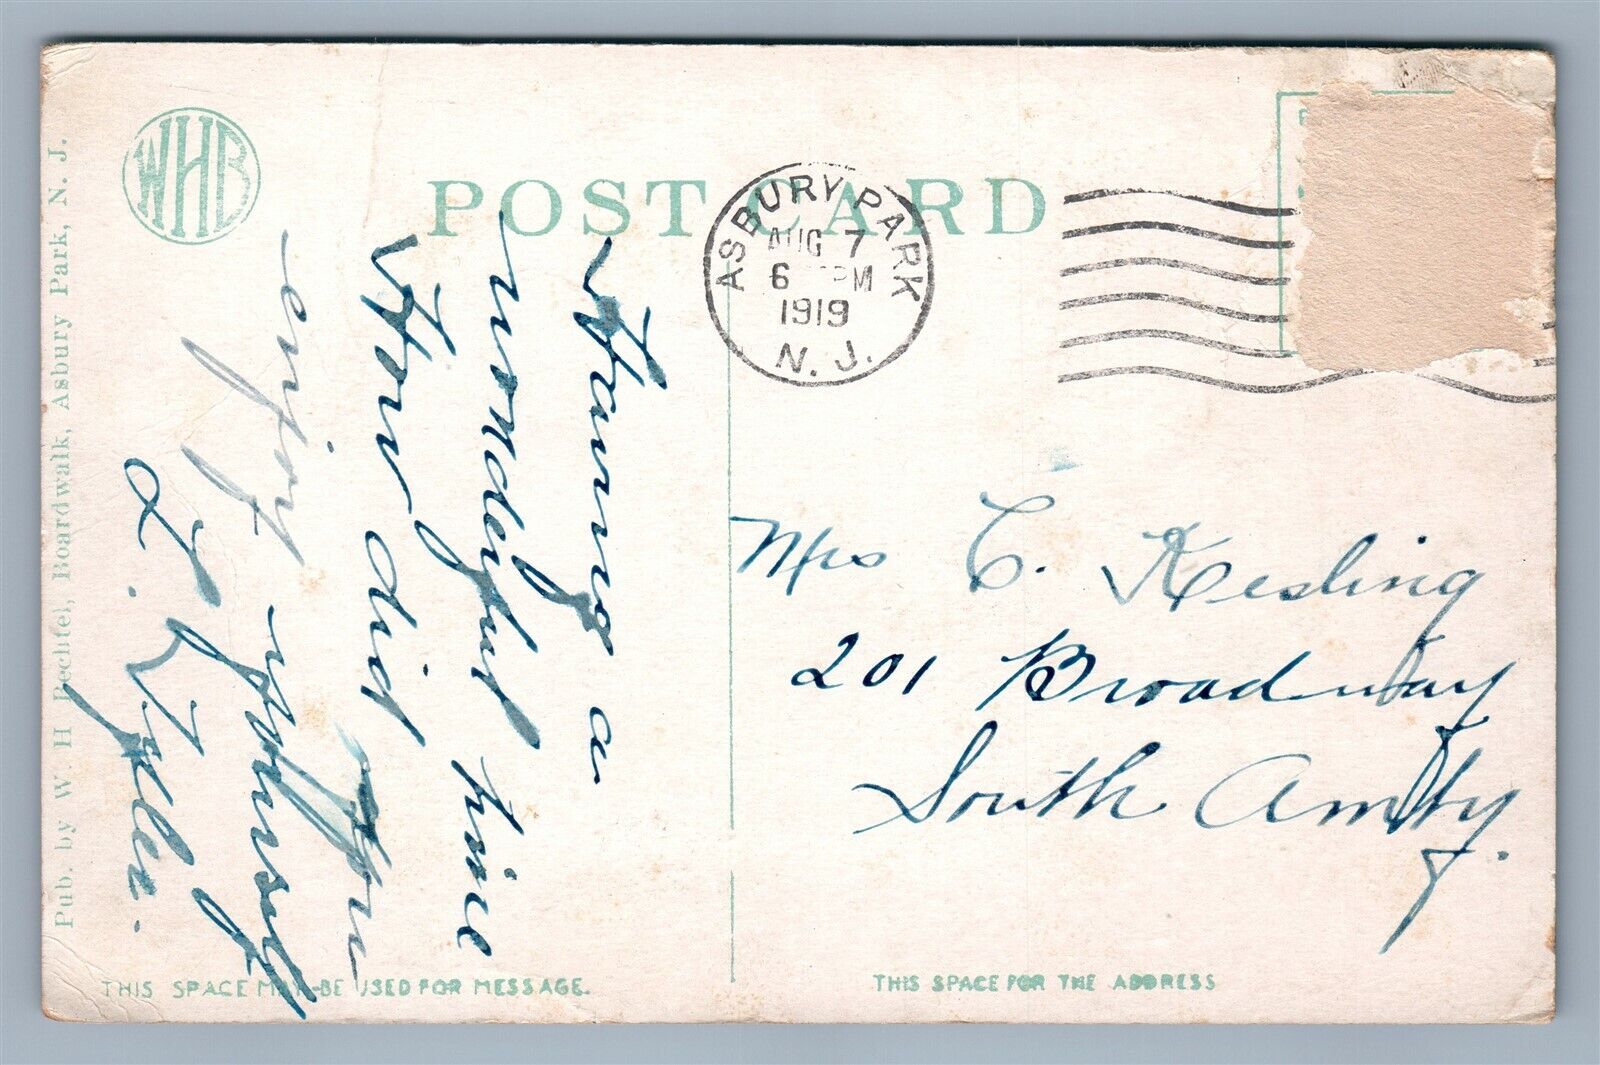 WHB
POST CARD
ASBURY PARK
AUG 7
6 PM
1919
N. J.
Having a
wonderful time
How did you
enjoy yourself
L. Zyller.
Mrs C. Kesling
201 Broadway
South Amby.
Pub. by W. H. Bechtel, Boardwalk, Asbury Park, N. J.
THIS SPACE MAY BE USED FOR MESSAGE.
THIS SPACE FOR THE ADDRESS